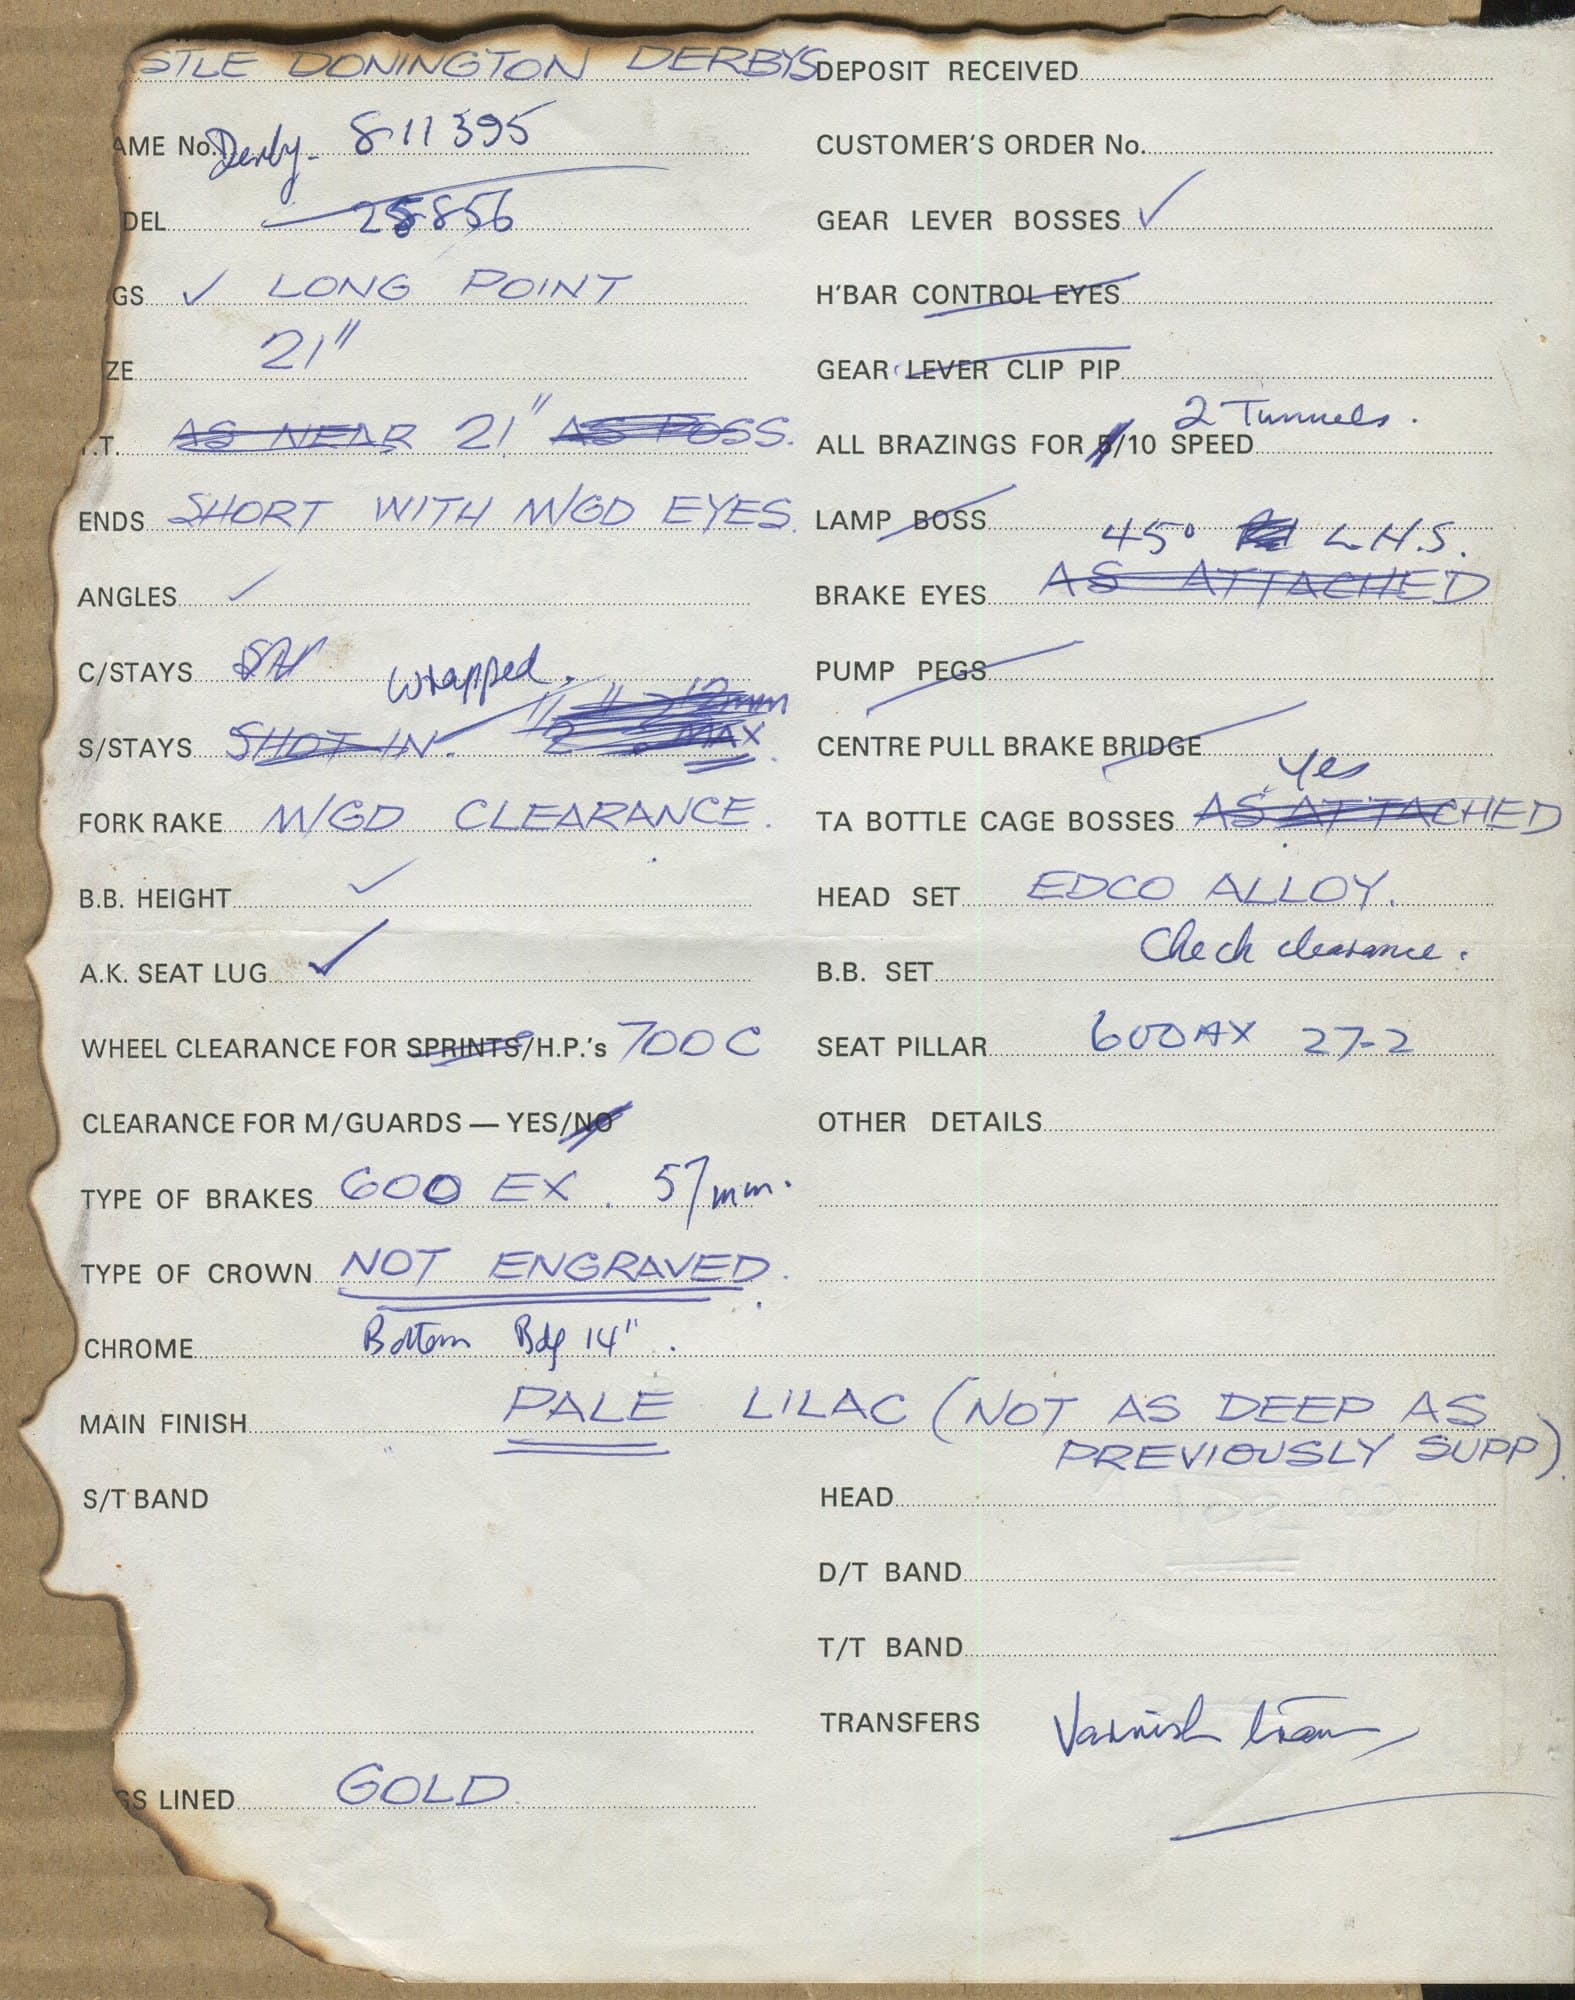 STLE DONINGTON DERBYS
AME No. Derby- 811395
DEL 25856
GS ✓ LONG POINT
ZE 21"
.T. AS NEAR 21" AS POSS.
ENDS SHORT WITH M/GD EYES.
ANGLES ✓
C/STAYS
Wrapped.
S/STAYS SHOT-IN. MAX
FORK RAKE M/GD CLEARANCE.
B.B. HEIGHT ✓
A.K. SEAT LUG ✓
WHEEL CLEARANCE FOR SPRINTS/H.P.'s 700C
CLEARANCE FOR M/GUARDS — YES/NO
TYPE OF BRAKES 600 EX. 57mm.
TYPE OF CROWN NOT ENGRAVED.
CHROME Bottom Bdg 14".
MAIN FINISH PALE LILAC (NOT AS DEEP AS
PREVIOUSLY SUPP).
S/T BAND
GS LINED GOLD
DEPOSIT RECEIVED
CUSTOMER'S ORDER No.
GEAR LEVER BOSSES ✓
H'BAR CONTROL EYES
GEAR LEVER CLIP PIP
2 Tunnels.
ALL BRAZINGS FOR 5/10 SPEED
LAMP BOSS
45° L.H.S.
BRAKE EYES AS ATTACHED
PUMP PEGS
CENTRE PULL BRAKE BRIDGE
Yes
TA BOTTLE CAGE BOSSES AS ATTACHED
HEAD SET EDCO ALLOY.
Check clearance.
B.B. SET
SEAT PILLAR 600AX 27-2
OTHER DETAILS
HEAD
D/T BAND
T/T BAND
TRANSFERS Varnish